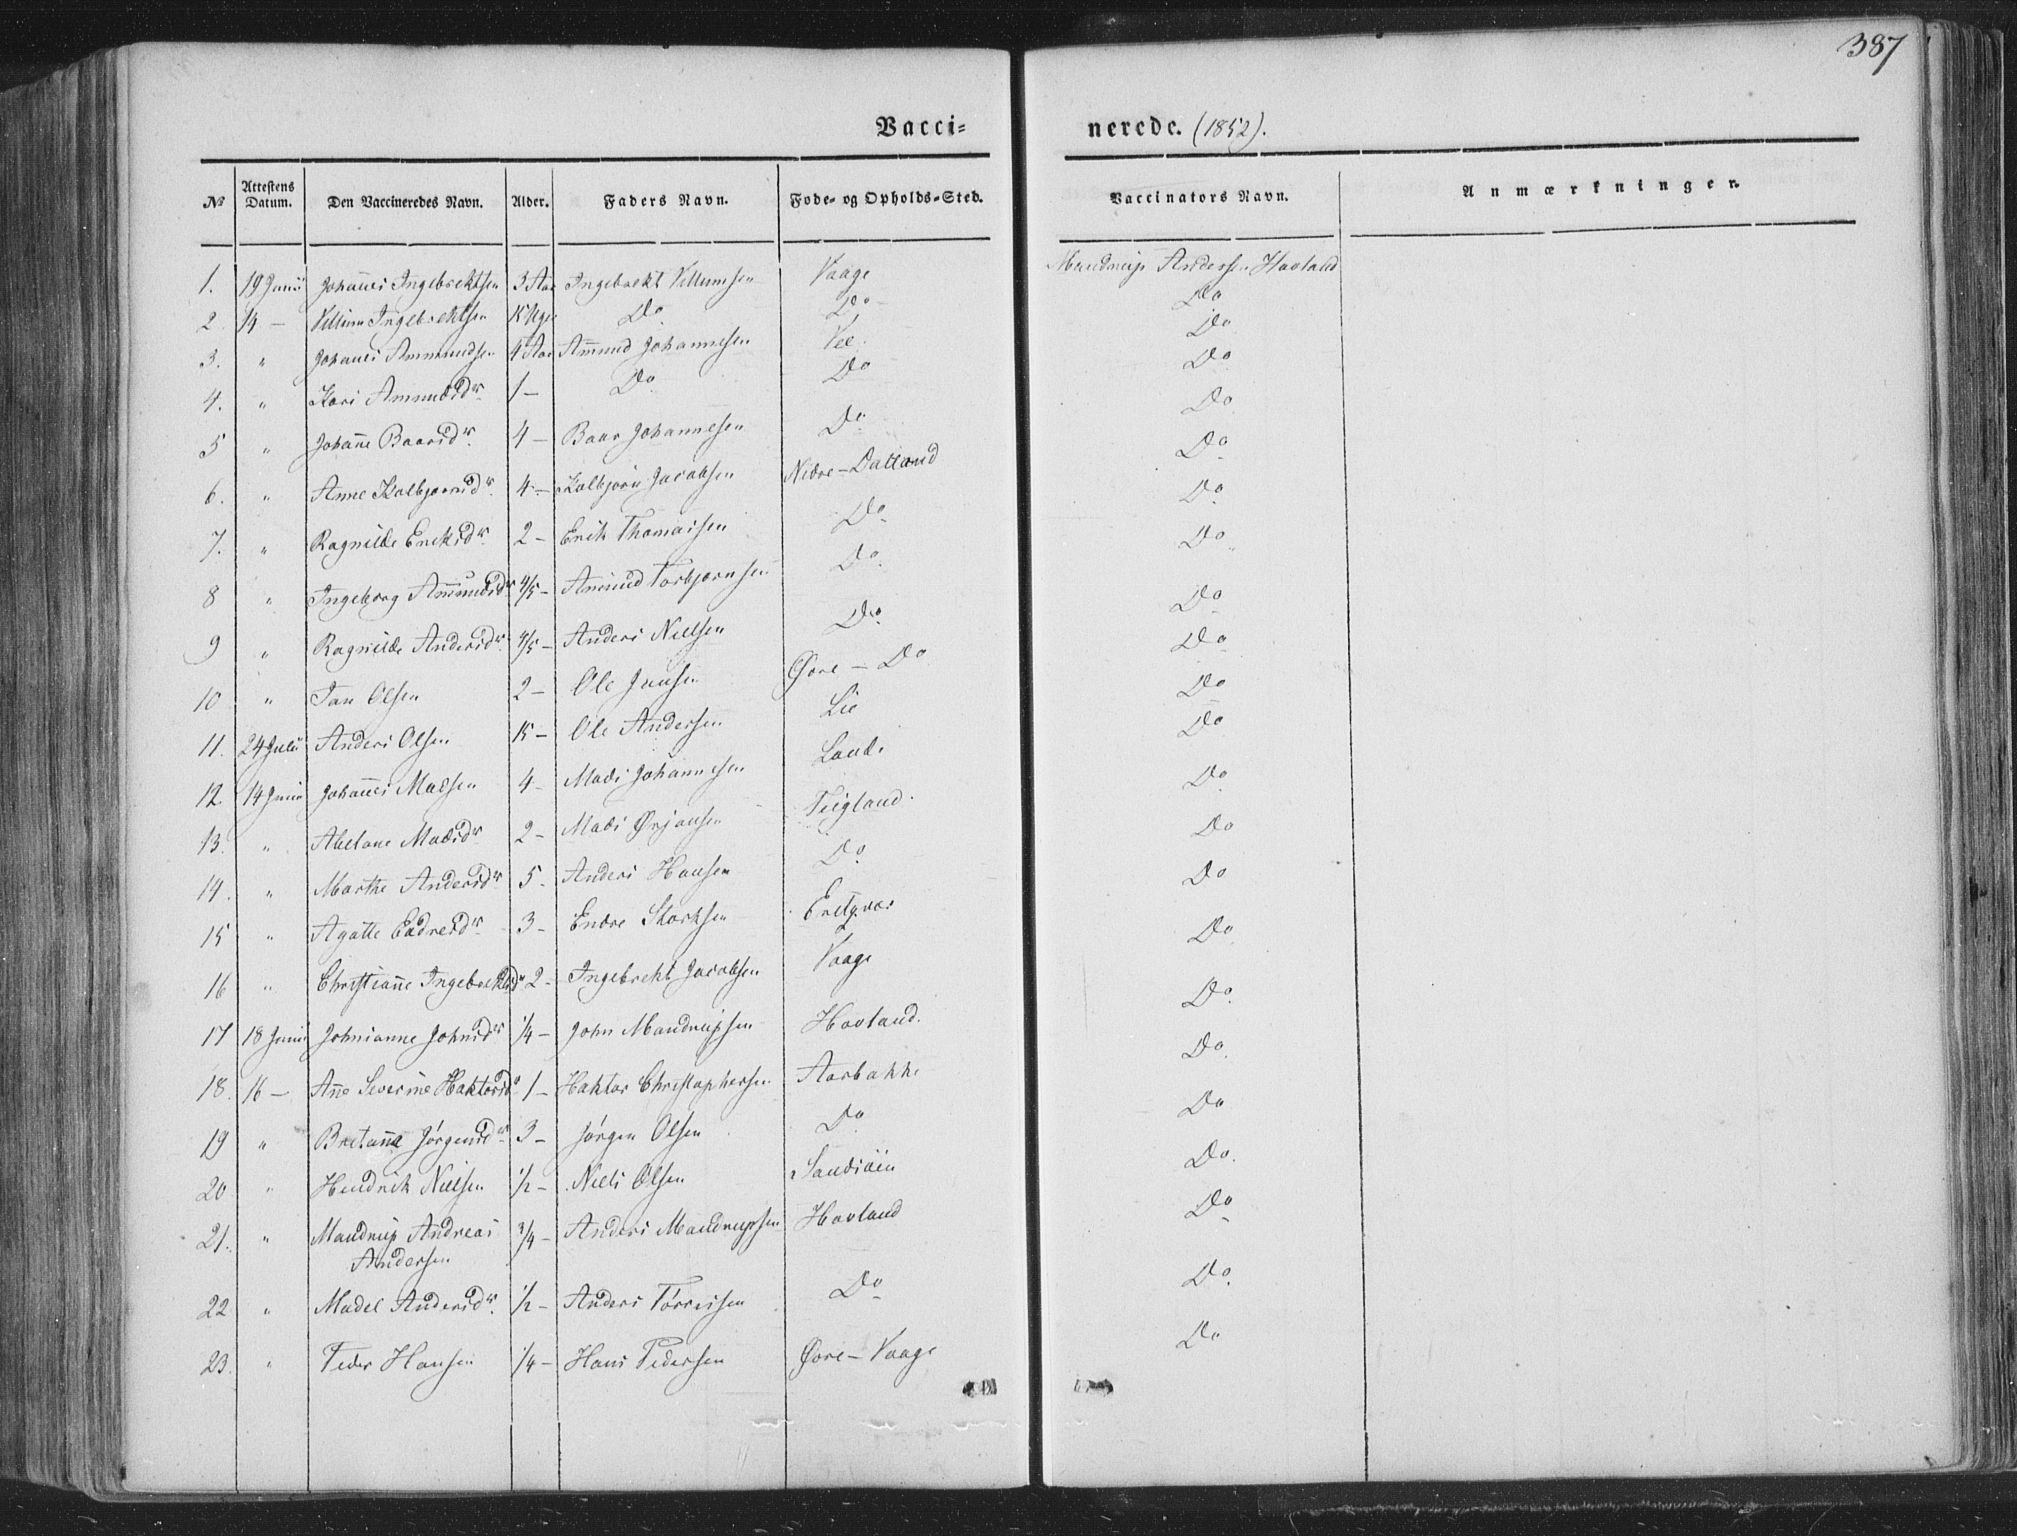 387
Vacci= nerede. (1852).
No Attestens Datum. Den Vaccineredes Navn. Alder. Faders Navn. Føde= og Opholds=Sted. Vaccinators Navn. Anmærkninger.
1. 19 Junii Johanes Ingebrektsen 3 Aar Ingebrekt Villumsen Vaage Mandrup Andersen Hovland
2. 14 — Villum Ingebrektsen Do Do — Do
3. " Johanes Ammundsen 4 Aar Amund Johannesen Vee. Do
4. " Kari Ammundsdr. 1 — Do Do Do
5 " Johane Baarsdr. 4 — Baar Johannesen Do Do
6. " Anne Kolbjørnsdr. 4 — Kolbjørn Jacobsen Nedre — Dalland Do
7. " Ragnilde Eriksdr. 2 — Erik Thomassen Do Do
8 " Ingeborg Ammundsdr. 4/5 — Amund Torbjørnsen Do. Do
9 " Ragnilde Andersdr. 4/5 — Anders Nielsen Do. Do
10 " Jan Olsen 2 — Ole Jansen Øvre — Do Do
11. 24 Julii Anders Olsen — Ole Andersen Lie Do
12. 14 Junii Johanes Madsen 4 — Mads Johannesen Lande Do
13. " Abelone Madsdr. 2 — Mads Ørjansen Teigland. Do
14. " Marthe Andersdr. 5. Anders Hansen Do. Do
15 " Agatte Endresdr. 3 — Endre Storksen Do
16 " Christiane Ingebrektsdr 2 — Ingebrekt Jacobsen Vaage Do
17 18 Junii Johnianne Johnsdr 1/4 — John Mandrupsen Hovland. Do.
18. 16 — Ane Severine Haktorsd 1 — Haktor Christophersen Aarbakke Do.
19 " Bretana Jørgensdr. 3 — Jørgen Olsen Do. Do
20 " Hendrik Nielsen 1/2 — Niels Olsen Sandvøen Do.
21. " Mandrup Andreas 3/4 — Anders Mandrupsen Hovland Do
Andersen
22 " Madel Andersdr. 1/2 — Anders Tørresen Do Do.
23. " Peder Hansen 1/4 — Hans Pedersen Øvre — Vaage Do